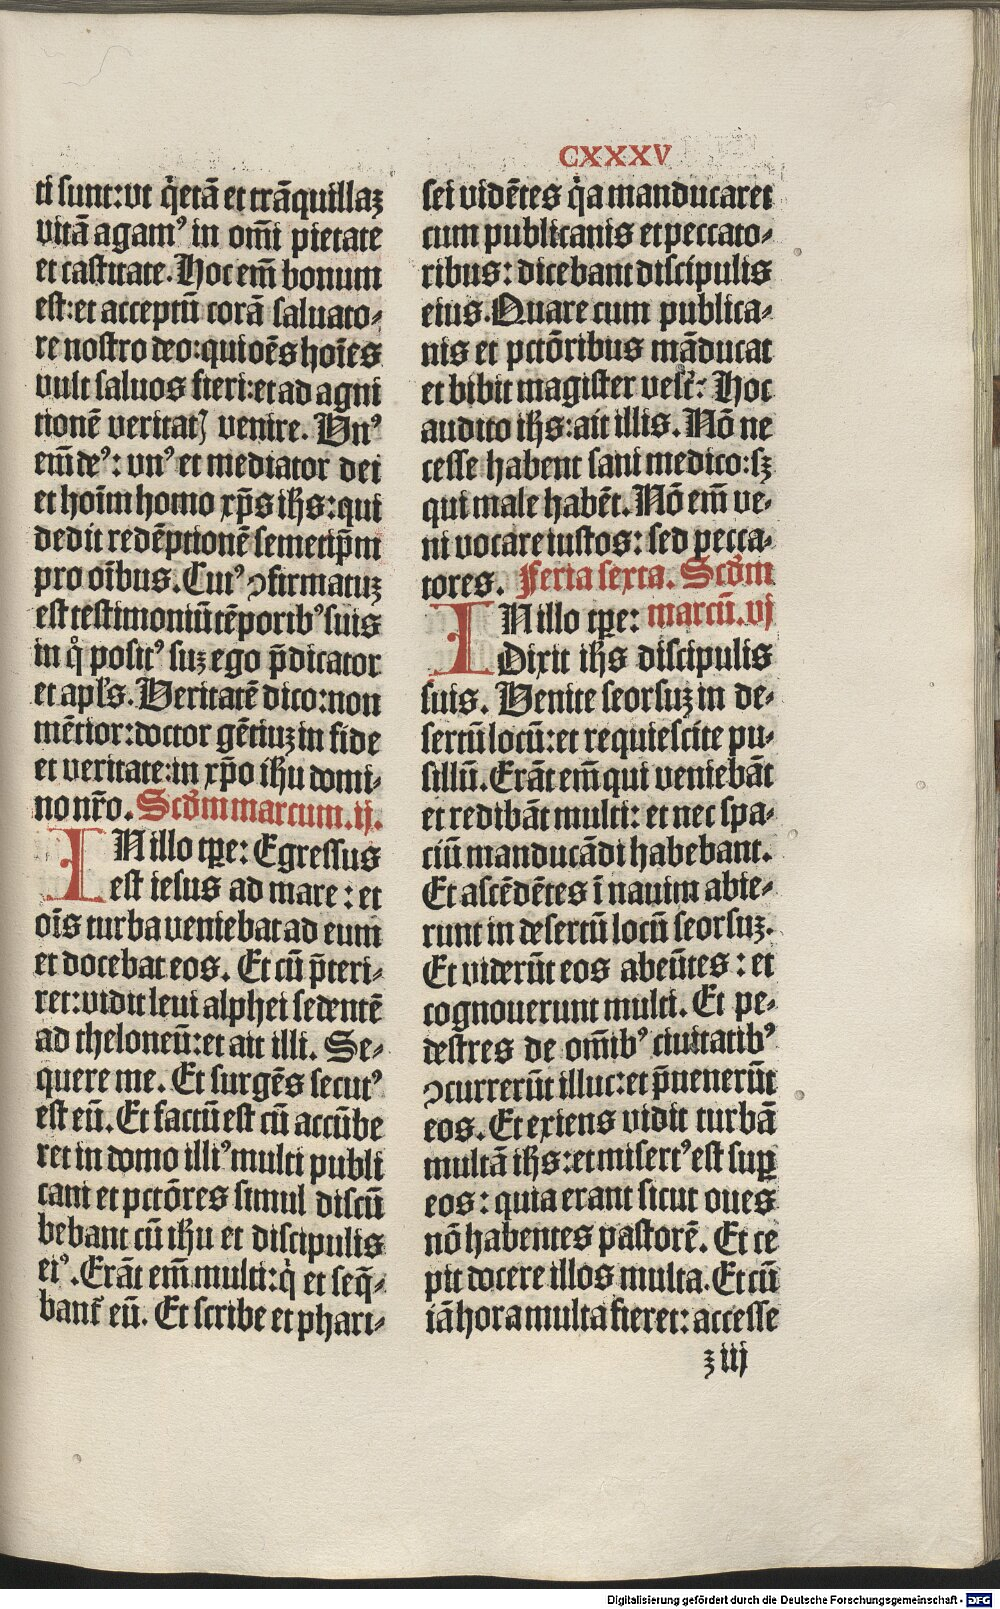 CXXXV
ti sunt: vt q̇etā et trāquillaꝫ
vitā agamꝰ in om̄i pietate
et castitate. Hoc em̄ bonum
est: et acceptū corā saluato⸗
re nostro deo: qui oēs hoīes
vult saluos fieri: et ad agni
tionē veritatꝭ venire. Vnꝰ
em̄ deꝰ: vnꝰ et mediator dei
et hoīm homo xp̄s ih̄s: qui
dedit redēptionē semetip̄m
pro oībus. Cuiꝰ ꝯfirmatuꝫ
est testimoniū tēporibꝰ suis
in q̊ positꝰ suꝫ ego p̄dicator
et apl̄s. Veritatē dico: non
mētior: doctor gētiuꝫ in fide
et veritate: in xp̄o ih̄u domi⸗
no nr̄o. Scd̄m marcum. ij.
IN illo tꝑe: Egressus
est iesus ad mare: et
oīs turba veniebat ad eum
et docebat eos. Et cū p̄teri⸗
ret: vidit leui alphei sedentē
ad theloneū: et ait illi. Se⸗
quere me. Et surgēs secutꝰ
est eū. Et factū est cū accūbe
ret in domo illiꝰ multi publi
cani et pctōres simul discū
bebant cū ih̄u et discipulis
eiꝰ. Erāt em̄ multi: q̇ et seq̄⸗
banť eū. Et scribe et phari⸗
sei vidētes q̇a manducaret
cum publicanis et peccato⸗
ribus: dicebant discipulis
eius. Quare cum publica⸗
nis et pctōribus māducat
et bibit magister vesť: Hoc
audito ih̄s: ait illis. Nō ne
cesse habent sani medico: sꝫ
qui male habēt. Nō em̄ ve⸗
ni vocare iustos: sed pecca⸗
tores. Feria sexta. Scd̄m
IN illo tꝑe: marcū. vj
Dixit ih̄s discipulis
suis. Venite seorsuꝫ in de⸗
sertū locū: et requiescite pu⸗
sillū. Erāt em̄ qui veniebāt
et redibāt multi: et nec spa⸗
ciū manducādi habebant.
Et ascēdētes ī nauim abie⸗
runt in desertū locū seorsuꝫ.
Et viderūt eos abeūtes: et
cognouerunt multi. Et pe⸗
destres de om̄ibꝰ ciuitatibꝰ
ꝯcurrerūt illuc: et p̄uenerūt
eos. Et exiens vidit turbā
multā ih̄s: et misertꝰ est suꝑ
eos: quia erant sicut oues
nō habentes pastorē. Et ce
pit docere illos multa. Et cū
iā hora multa fieret: accesse
ꝫ iij
Digitalisierung gefördert durch die Deutsche Forschungsgemeinschaft - DFG